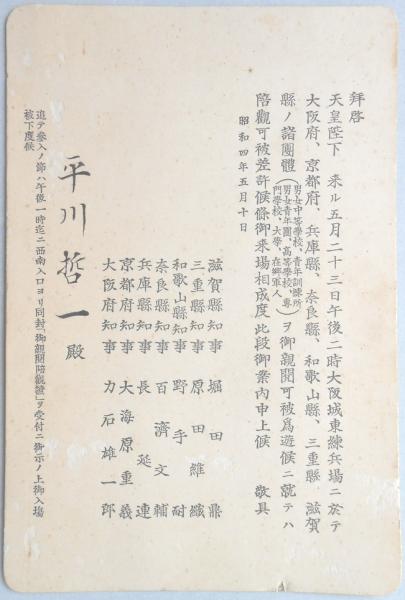 拜啓
天皇陛下　來ル五月二十三日午後二時大阪城東練兵場ニ於テ
大阪府、京都府、兵庫縣、奈良縣、和歌山縣、三重縣　滋賀
縣ノ諸團體（男女中等學校、青年訓練所
男女青年團、高等學校、專
門學校、大學、在鄉軍人）ヲ御親閱可被爲遊候ニ就テハ
陪觀可被差許候條御來場相成度此段御案內申上候　敬具
昭和四年五月十日
滋賀縣知事　堀田鼎
三重縣知事　原田維織
和歌山縣知事　野手耐
奈良縣知事　百濟文輔
兵庫縣知事　長延連
京都府知事　大海原重義
大阪府知事　力石雄一郎
平川哲一殿
追テ參入ノ節ハ午後一時迄ニ西南入口ヨリ同封「御親閱陪觀證」ヲ受付ニ御示ノ上御入場
被下度候